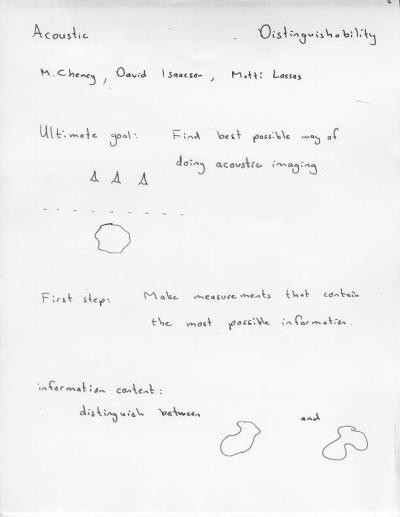 Acoustic Distinguishability
M. Cheney, David Isaacson, Matti Lassas
Ultimate goal: Find best possible way of
doing acoustic imaging.
First step: Make measurements that contain
the most possible information.
information content:
distinguish between and